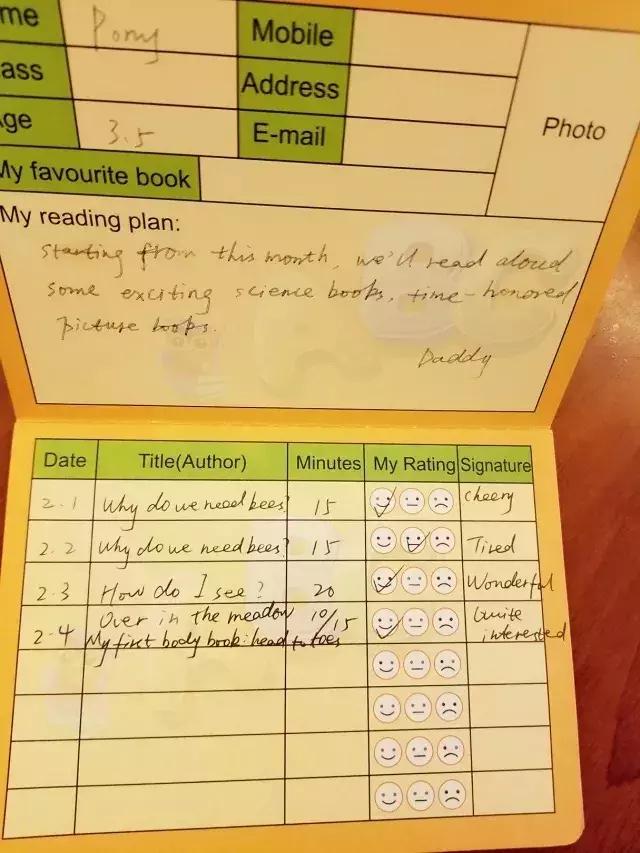 me Pony Mobile
ass Address
ge 3.5 E-mail
Photo
My favourite book
My reading plan:
Starting from this month, we'll read aloud
some exciting science books, time-honored
picture books.
Daddy
Date Title(Author) Minutes My Rating Signature
2.1 Why do we need bees? 15 Cheery
2.2 Why do we need bees? 15 Tired
2.3 How do I see? 20 Wonderful
2.4 Over in the meadow 10/15 Quite
My first body book: head to toes interested